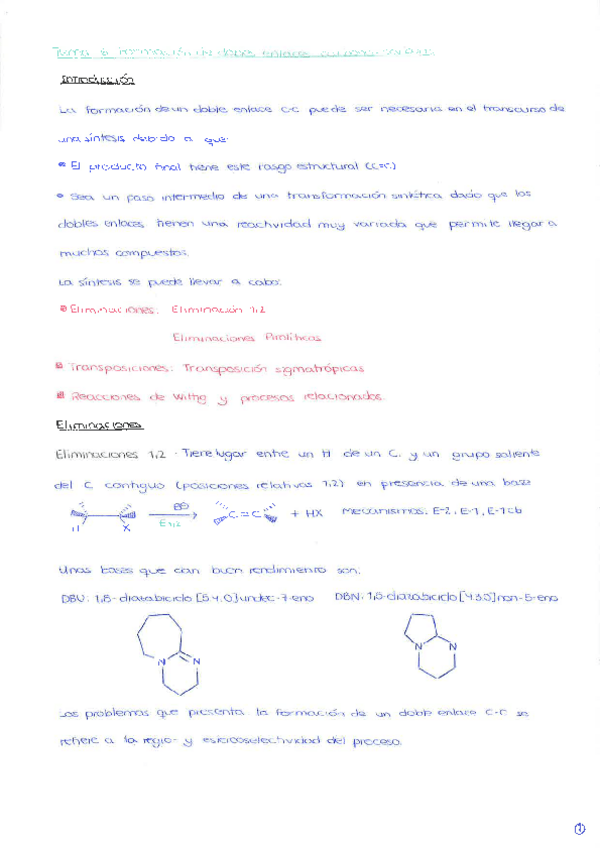 Tema 6 Formación de dobles enlace
Introducción
La formación de un doble enlace C-C puede ser necesaria en el transcurso de
una síntesis debido a que:
• El producto final tiene este rasgo estructural (C=C)
• Sea un paso intermedio de una transformación sintética dado que los
dobles enlaces tienen una reactividad muy variada que permite llegar a
muchos compuestos.
La síntesis se puede llevar a cabo:
Eliminaciones: Eliminación 1,2
Eliminaciones Pirolíticas
Transposiciones: Transposición sigmatrópicas
Reacciones de Wittig y procesos relacionados.
Eliminaciones
Eliminaciones 1,2 - Tiene lugar entre un H de un C, y un grupo saliente
del C contiguo (posiciones relativas 1,2) en presencia de una base
H X B⊖ E1,2 C=C + HX Mecanismos: E-2, E-1, E-1cb
Unas bases que dan buen rendimiento son:
DBU: 1,8-diazabiciclo [5.4.0] undec-7-eno DBN: 1,5-diazabiciclo [4.3.0] non-5-eno
N N N N
Los problemas que presenta la formación de un doble enlace C-C se
refiere a la regio- y estereoselectividad del proceso.
1